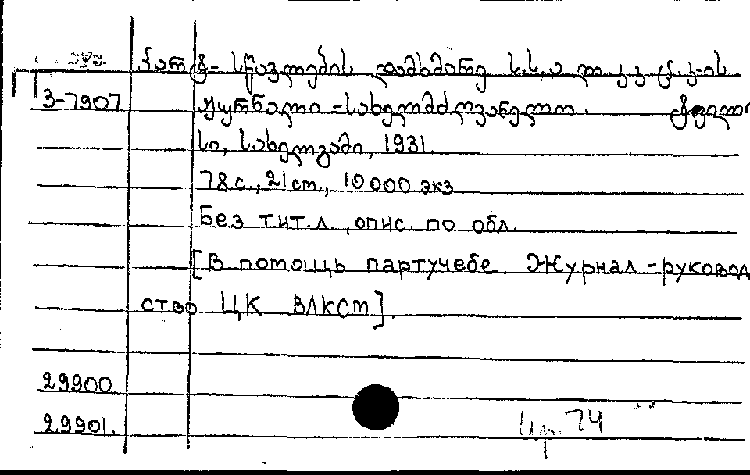 პარტ-სწავლების დამხმარე ს.ს.ა.ლ.კ.კ.ც.კ-ის
3-7907 ჟურნალი-სახელმძღვანელო. ტფილი
სი, სახელგამი, 1931.
78 с., 21 см., 10 000 экз
Без тит. л опис. по обл.
[В помощь партучебе. Журнал-руковод
ство ЦК ВЛКСМ].
29900
29901.
74